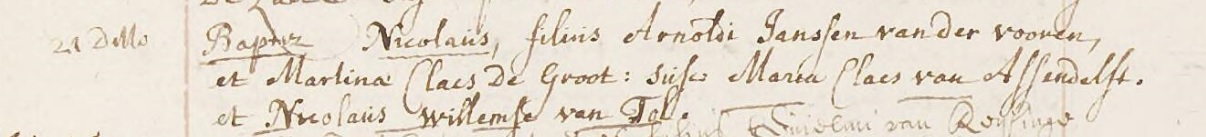 21 Ditto Baptiz Nicolaüs, filius Arnoldi Janssen van der vooren,
et Martinæ Claes De Groot: susc Maria Claes van Assendelft.
et Nicolaüs willemse van Tol.
van